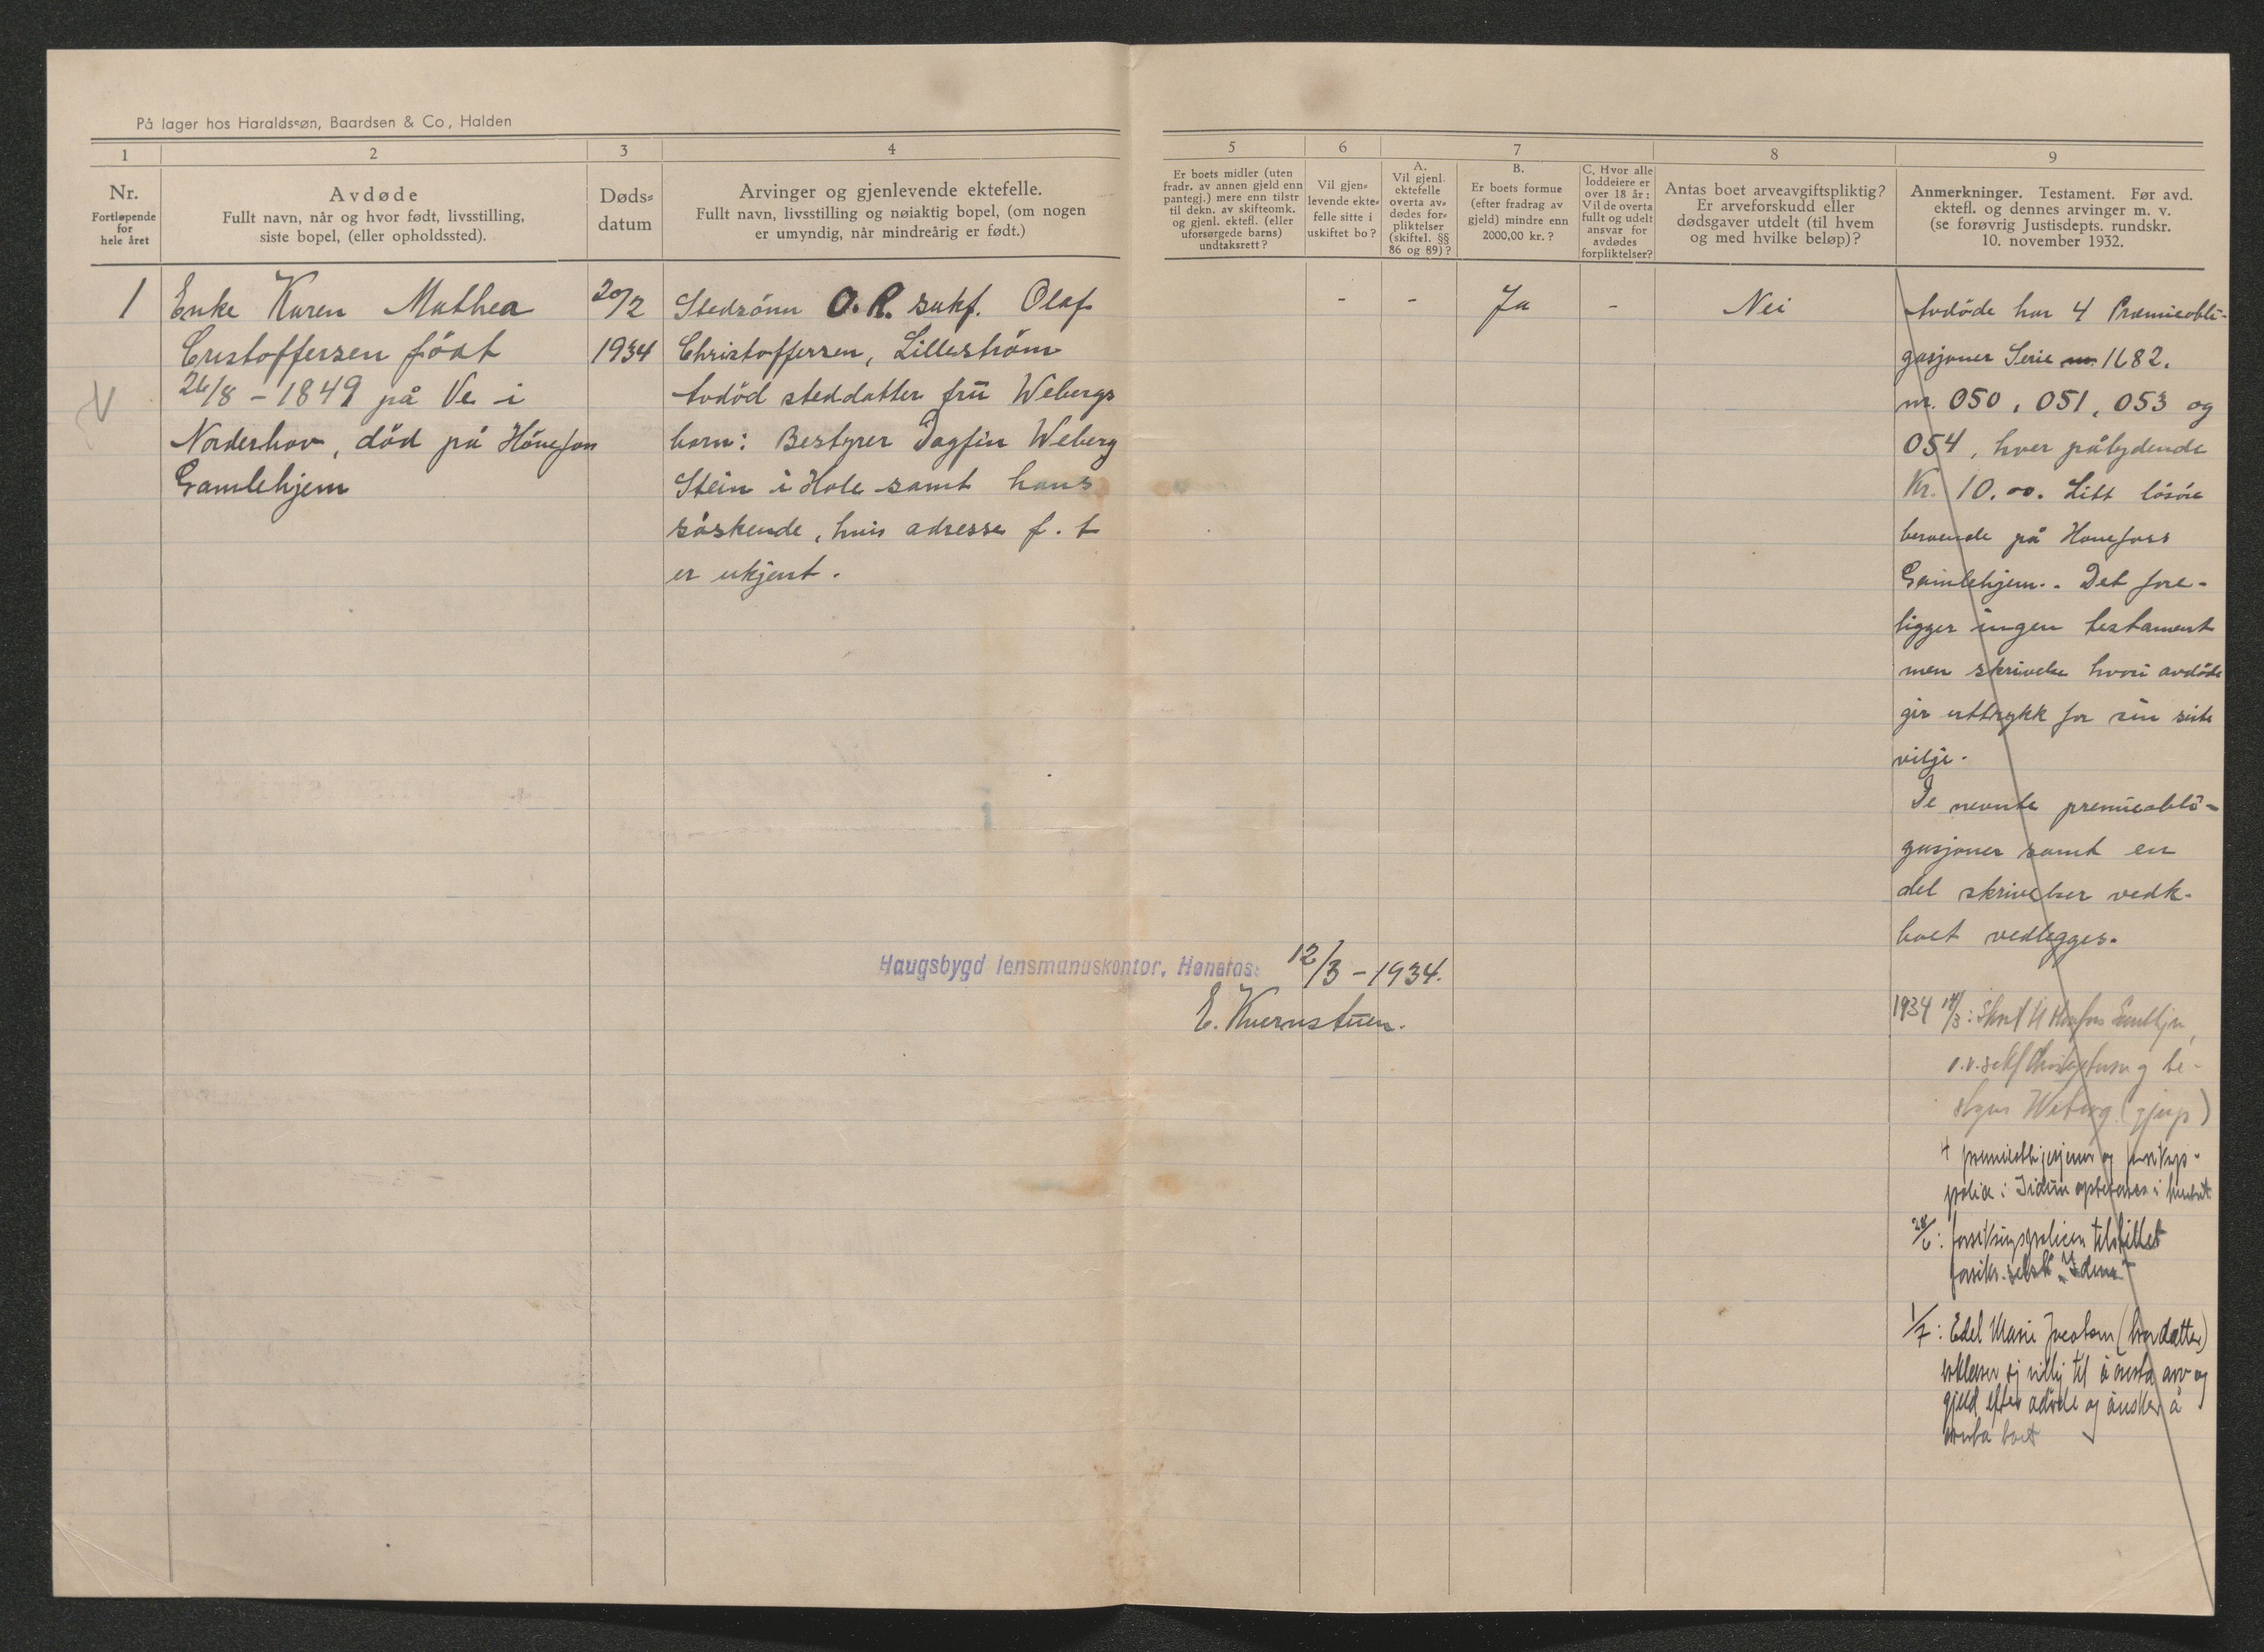 På lager hos Haraldssøn, Baardsen & Co, Halden
1
2
3
4
5
6
7
8
9
Nr.
Fortløpende
for
hele året
Avdøde
Fullt navn, når og hvor født, livsstilling,
siste bopel, (eller opholdssted).
Døds=
datum
Arvinger og gjenlevende ektefelle.
Fullt navn, livsstilling og nøiaktig bopel, (om nogen
er umyndig, når mindreårig er født.)
Er boets midler (uten
fradr. av annen gjeld enn
pantegj.) mere enn tilstr
til dekn. av skifteomk.
og gjenl. ektefl. (eller
uforsørgede barns)
undtaksrett?
Vil gjen=
levende ekte=
felle sitte i
uskiftet bo?
A.
Vil gjenl.
ektefelle
overta av=
dødes for=
pliktelser
(skiftel. §§
86 og 89)?
B.
Er boets formue
(efter fradrag av
gjeld) mindre enn
2000,00 kr.?
C. Hvor alle
loddeiere er
over 18 år:
Vil de overta
fullt og udelt
ansvar for
avdødes
forpliktelser?
Antas boet arveavgiftspliktig?
Er arveforskudd eller
dødsgaver utdelt (til hvem
og med hvilke beløp)?
Anmerkninger. Testament. Før avd.
ektefl. og dennes arvinger m. v.
(se forøvrig Justisdepts. rundskr.
10. november 1932.
1
Enke Karen Mathea
Cristoffersen födt
26/8 - 1849 på Ve i
Norderhov, död på Hönefoss
Gamlehjem
20/2
1934
Stedsönn O.R. sakf. Olaf
Christoffersen, Lilleström
Avdöd steddatter frü Webergs
barn: Bestyrer Dagfin Weberg
Stein i Hole samt hans
söskende, hvis adresse f. t
er ukjent.
-
-
Ja
-
Nei
Avdöde har 4 Præmieobli-
gasjoner Serie nr. 1682.
nr. 050, 051, 053 og
054, hver pålydende
Kr. 10.00. Litt lösöre
beroende på Hönefoss
Gamlehjem. Det fore-
ligger ingen testament
men skrivelse hvori avdöde
gir uttrykk for sin siste
vilje.
De nevnte premieobli-
gasjoner samt en
del skrivelser vedk.
boet vedlegges.
Haugsbygd lensmandskontor, Hønefoss
12/3 - 1934.
E. Kvernstuen.
1934 14/3: Skrevet til Hönefoss Gamlehjem,
o.r.sakf Christoffersen og be-
styrer Weberg (gjenp)
4 premieobligasjoner og forsikrings-
police i Idun opbevares i
28/6: forsikringspolicen tilstillet
forsikr. selsk. "Idun"
1/7: Edel Marie Jacobsen (brordatter)
erklærer sig villig til å overta arv og
gjeld efter avdöde og önsker å
overta boet